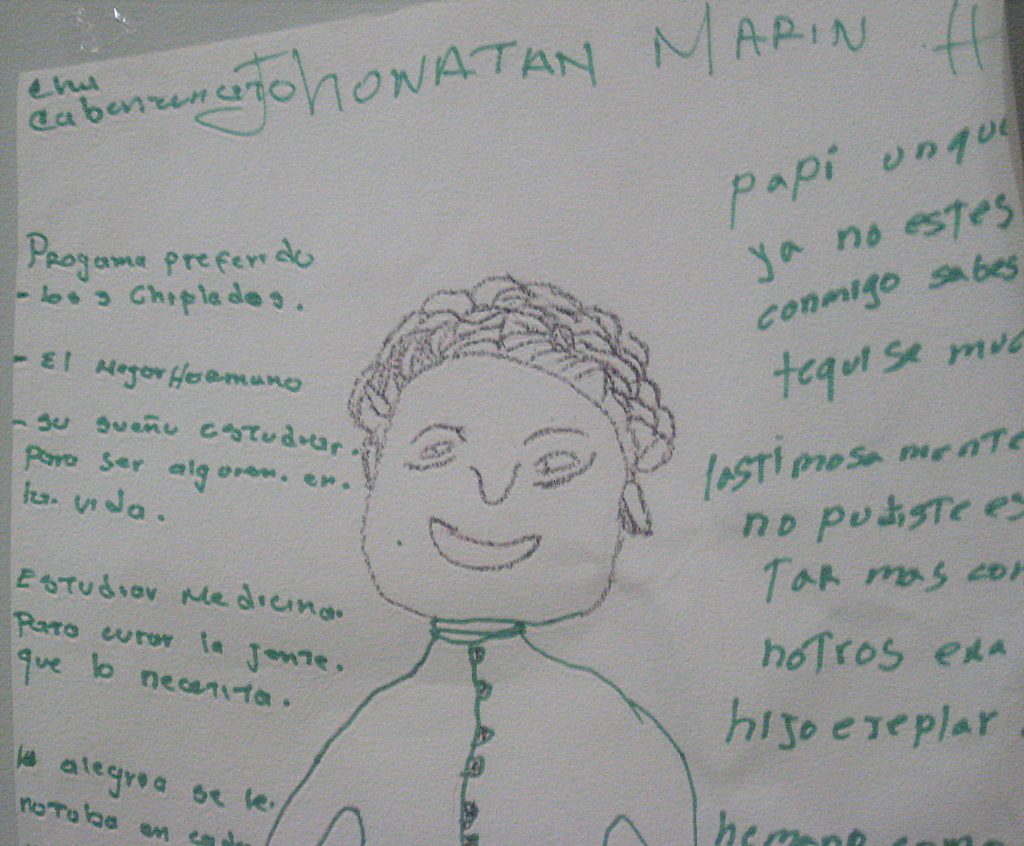 JHONATAN MARIN H
Progama preferido
- los Chiplados.
- El Mejor Hoermuno
- su sueñu estudiar.
para ser alguien. en.
la. vida.
Estudiar Medicina.
Para curar la jente.
que lo necesita.
la alegria se le.
notaba en cada
papi unque
ya no estes
conmigo sabes
tequise muc
lastimosa mente
no pudiste es
TAR mas con
notros era
hijo ereplar.
hemano como